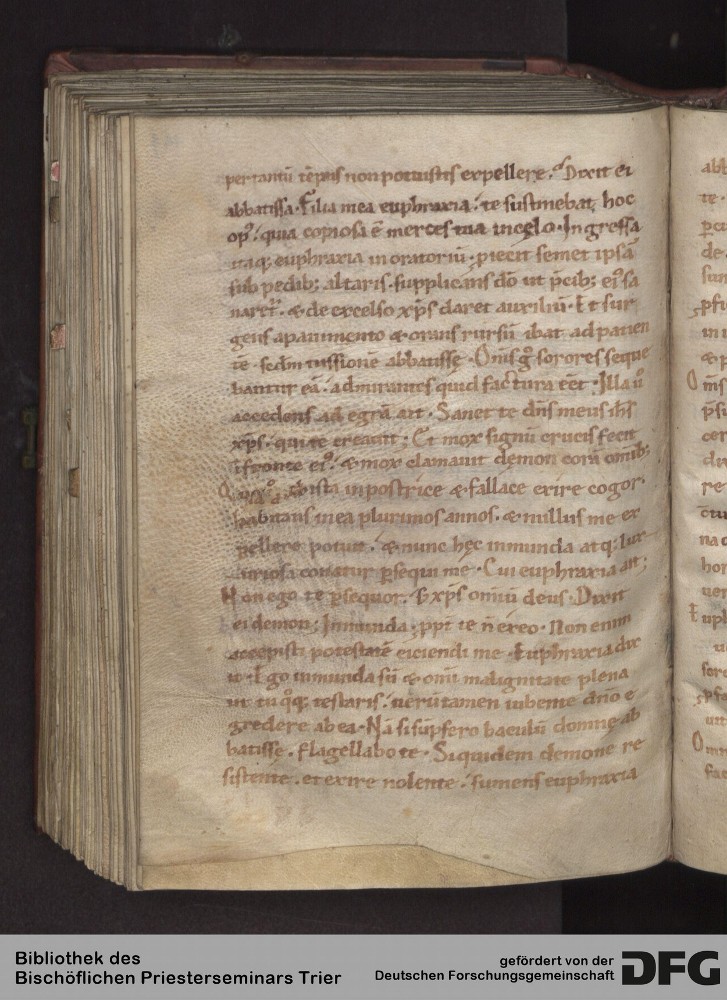 per tantū tēpus non potuistis expellere. Dixit ei
abbatissa. Filia mea euphraxia. te sustinebat hoc
opꝰ. quia copiosa ē merces tua in celo. Ingressa
itaq; euphraxia in oratoriū. piecit semet ipsā
sub pedib; altaris. supplicans dō ut p̄cib; eiꝰ sa
naret᷑. & de excelso xp̄s daret auxiliū. Et sur
gens a pauimento & orans rursū ibat ad patien
tē. scdm iussionē abbatissę. Om̄s g̊ sorores seque
bantur eā. admirantes quid factura eēt. Illa ů
accedens ad egrā ait. Sanet te dn̄s meus ih̄s
xp̄s. qui te creauit. Et mox signū crucis fecit
ī fronte eiꝰ. & mox clamauit demon corā omib;
ista inpostrice & fallace exire cogor.
habitans in ea plurimos annos. & nullus me ex
pellere potuit. & nunc hęc inmunda atq; lux
uriosa conatur p̱sequi me. Cui euphraxia ait;
Non ego te p̱sequor. s; xp̄s omiū deus. Dixit
ei demon; Inmunda. ppt̄ te n̄ exeo. Non enim
accepisti potestatē eiciendi me. Euphraxia dix
it. Ego inmunda sū & om̄i malignitate plena
ut tu q̊q; testaris. uerūtamen iubente dn̄o e
gredere ab ea. Nā si sūpsero baculū domnę ab
batissę. flagellabo te. Siquidem demone re
sistente. et exire nolente. sumens euphraxia
Bibliothek des
Bischöflichen Priesterseminars Trier
gefördert von der
Deutschen Forschungsgemeinschaft
DFG